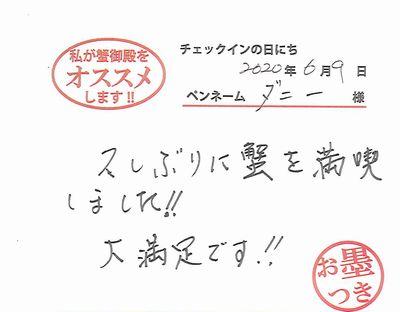 私が蟹御殿を
オススメ
します!!
チェックインの日にち
2020年6月9日
ペンネーム ダニー 様
久しぶりに蟹を満喫
しました!!
大満足です!!
お墨
つき